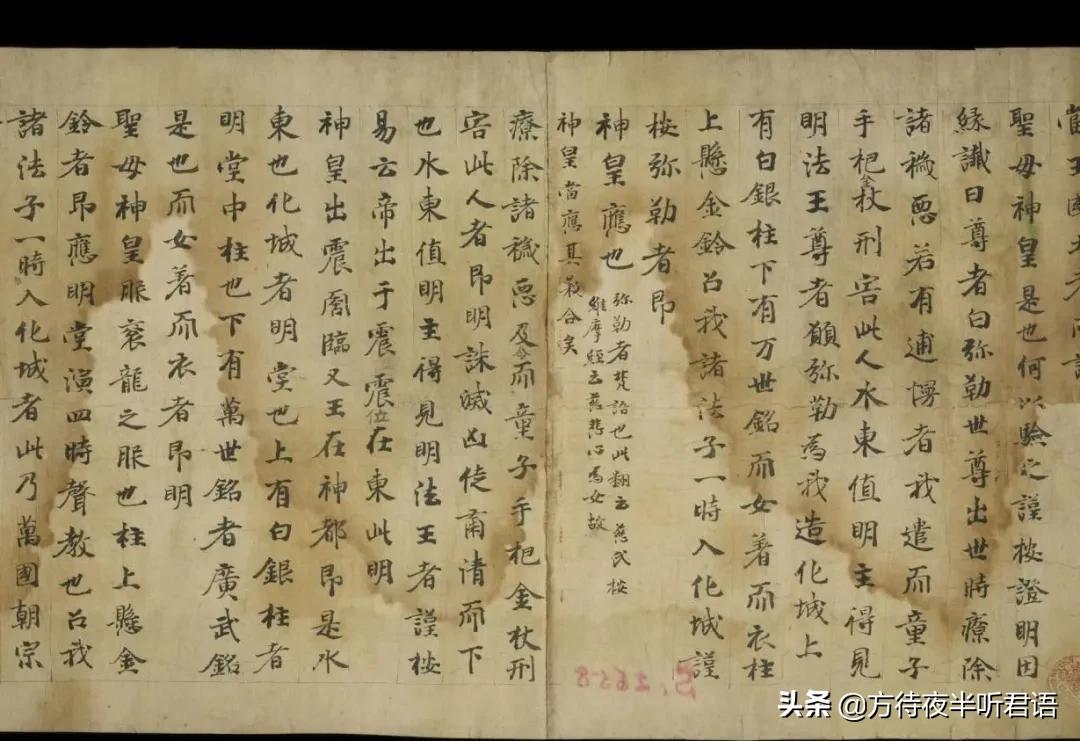 聖母神皇是也何以驗之謹桉證明因
緣讖曰尊者白弥勒世尊出世時療除
諸穢惡若有逋慢者我遣而童子
手杷金杖刑害此人水東值明主得見
明法王尊者願弥勒為我造化城上
有白銀柱下有万世銘而女著而衣柱
上懸金鈴召我諸法子一時入化城謹
桉弥勒者即
神皇應也
弥勒者梵語也此翻云慈氏桉
維摩經云慈悲心為女故
神皇當應其義合矣
療除諸穢惡及令而童子手杷金杖刑
害此人者即明誅滅凶徒肅清而下
也水東值明主得見明法王者謹桉
易云帝出于震震位在東此明
神皇出震君臨又王在神都即是水
東也化城者明堂也上有白銀柱者
明堂中柱也下有萬世銘者廣武銘
是也而女著而衣者即明
聖母神皇服袞龍之服也柱上懸金
鈴者即應明堂演四時聲教也召我
諸法子一時入化城者此乃萬國朝宗
S. 2658
头条 @方待夜半听君语